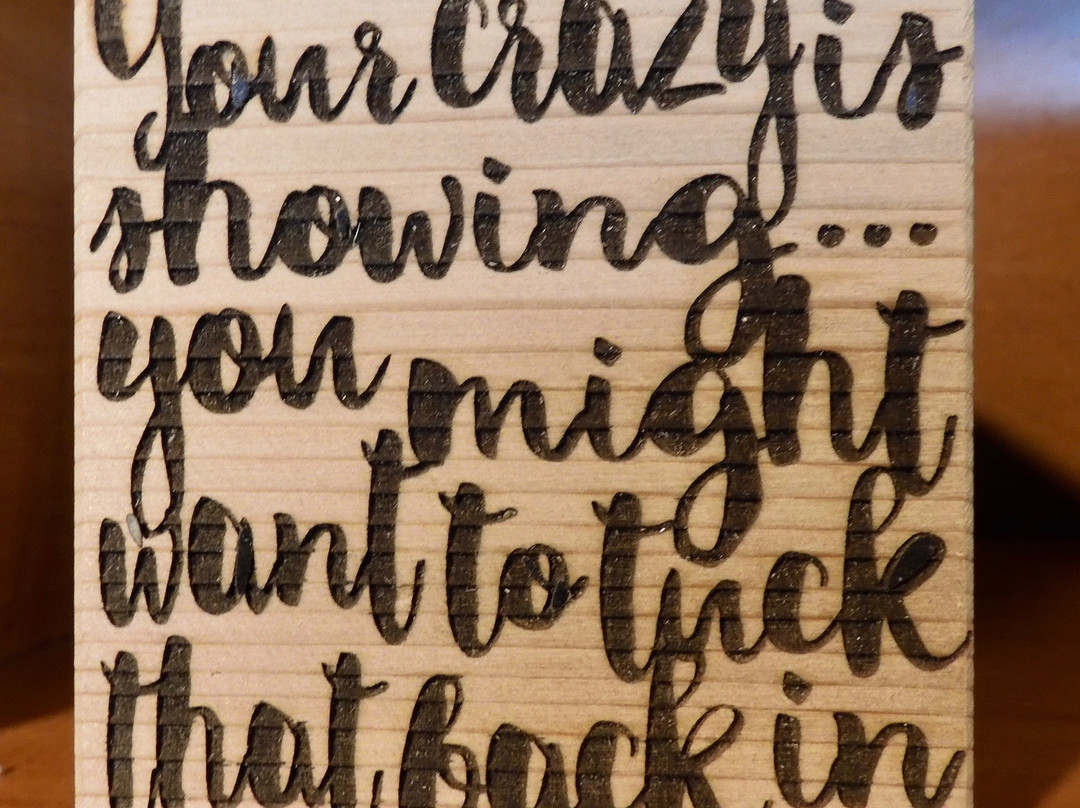 Your crazy is
showing...
you might
want to tuck
that back in